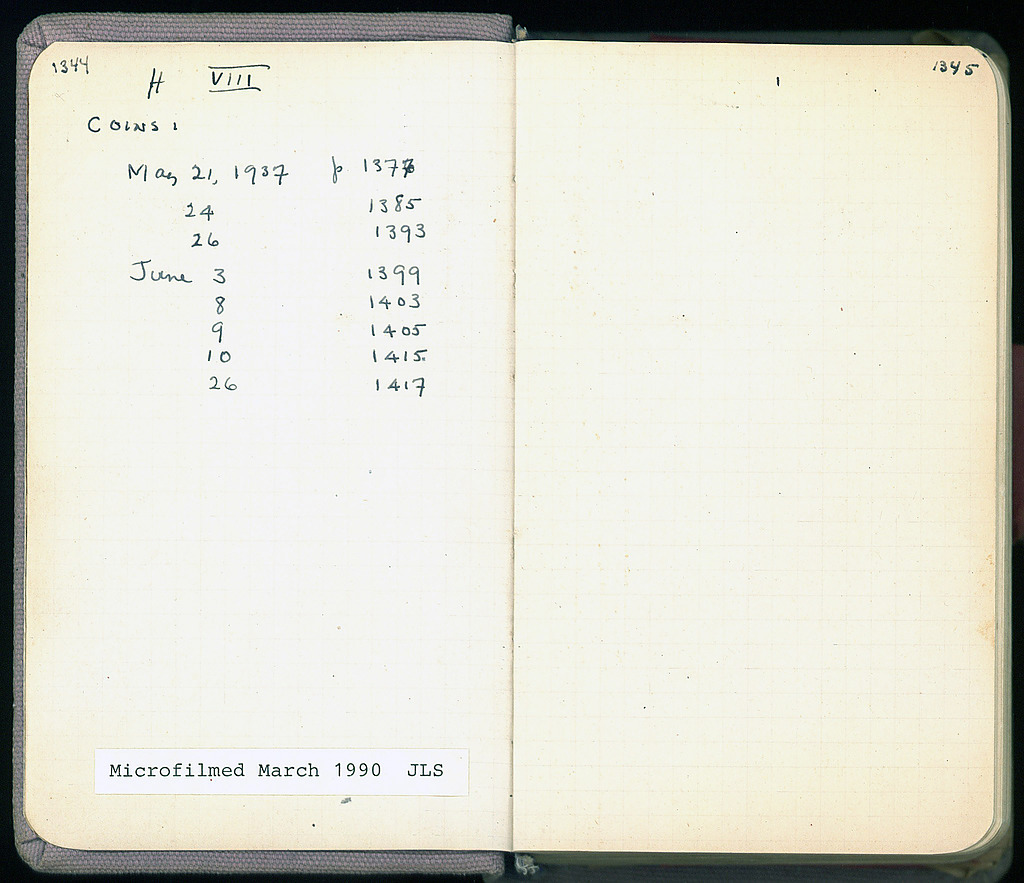 1344
H VIII
COINS:
May 21, 1937 p 1377
24 1385
26 1393
June 3 1399
8 1403
9 1405
10 1415
26 1417
Microfilmed March 1990 JLS
1345